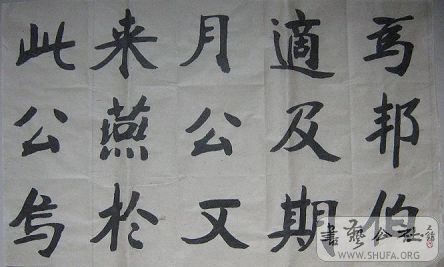 焉邦伯
適及期
月公又
来燕於
此公焉
書藝公社
WWW.SHUFA.ORG